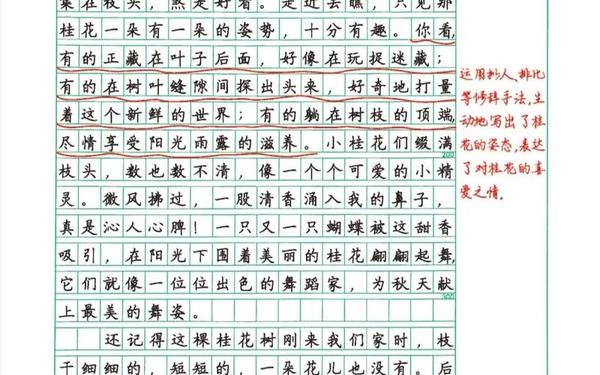 集在枝头，煞是好看。走近去瞧，只见那
桂花一朵有一朵的姿势，十分有趣。你看，
有的正藏在叶子后面，好像在玩捉迷藏；
有的在树叶缝隙间探出头来，好奇地打量
着这个新鲜的世界；有的躺在树枝的顶端，
尽情享受阳光雨露的滋养。小桂花们缀满
200
枝头，数也数不清，像一个个可爱的小精
灵。微风拂过，一股清香涌入我的鼻子，
真是沁人心脾！一只又一只蝴蝶被这甜香
吸引，在阳光下围着美丽的桂花翩翩起舞，
它们就像一位位出色的舞蹈家，为秋天献
300
上最美的舞姿。
还记得这棵桂花树刚来我们家时，枝
干细细的，短短的，一朵花儿也没有。后
运用拟人、排比
等修辞手法，生
动地写出了桂
花的姿态，表达
了对桂花的喜
爱之情.